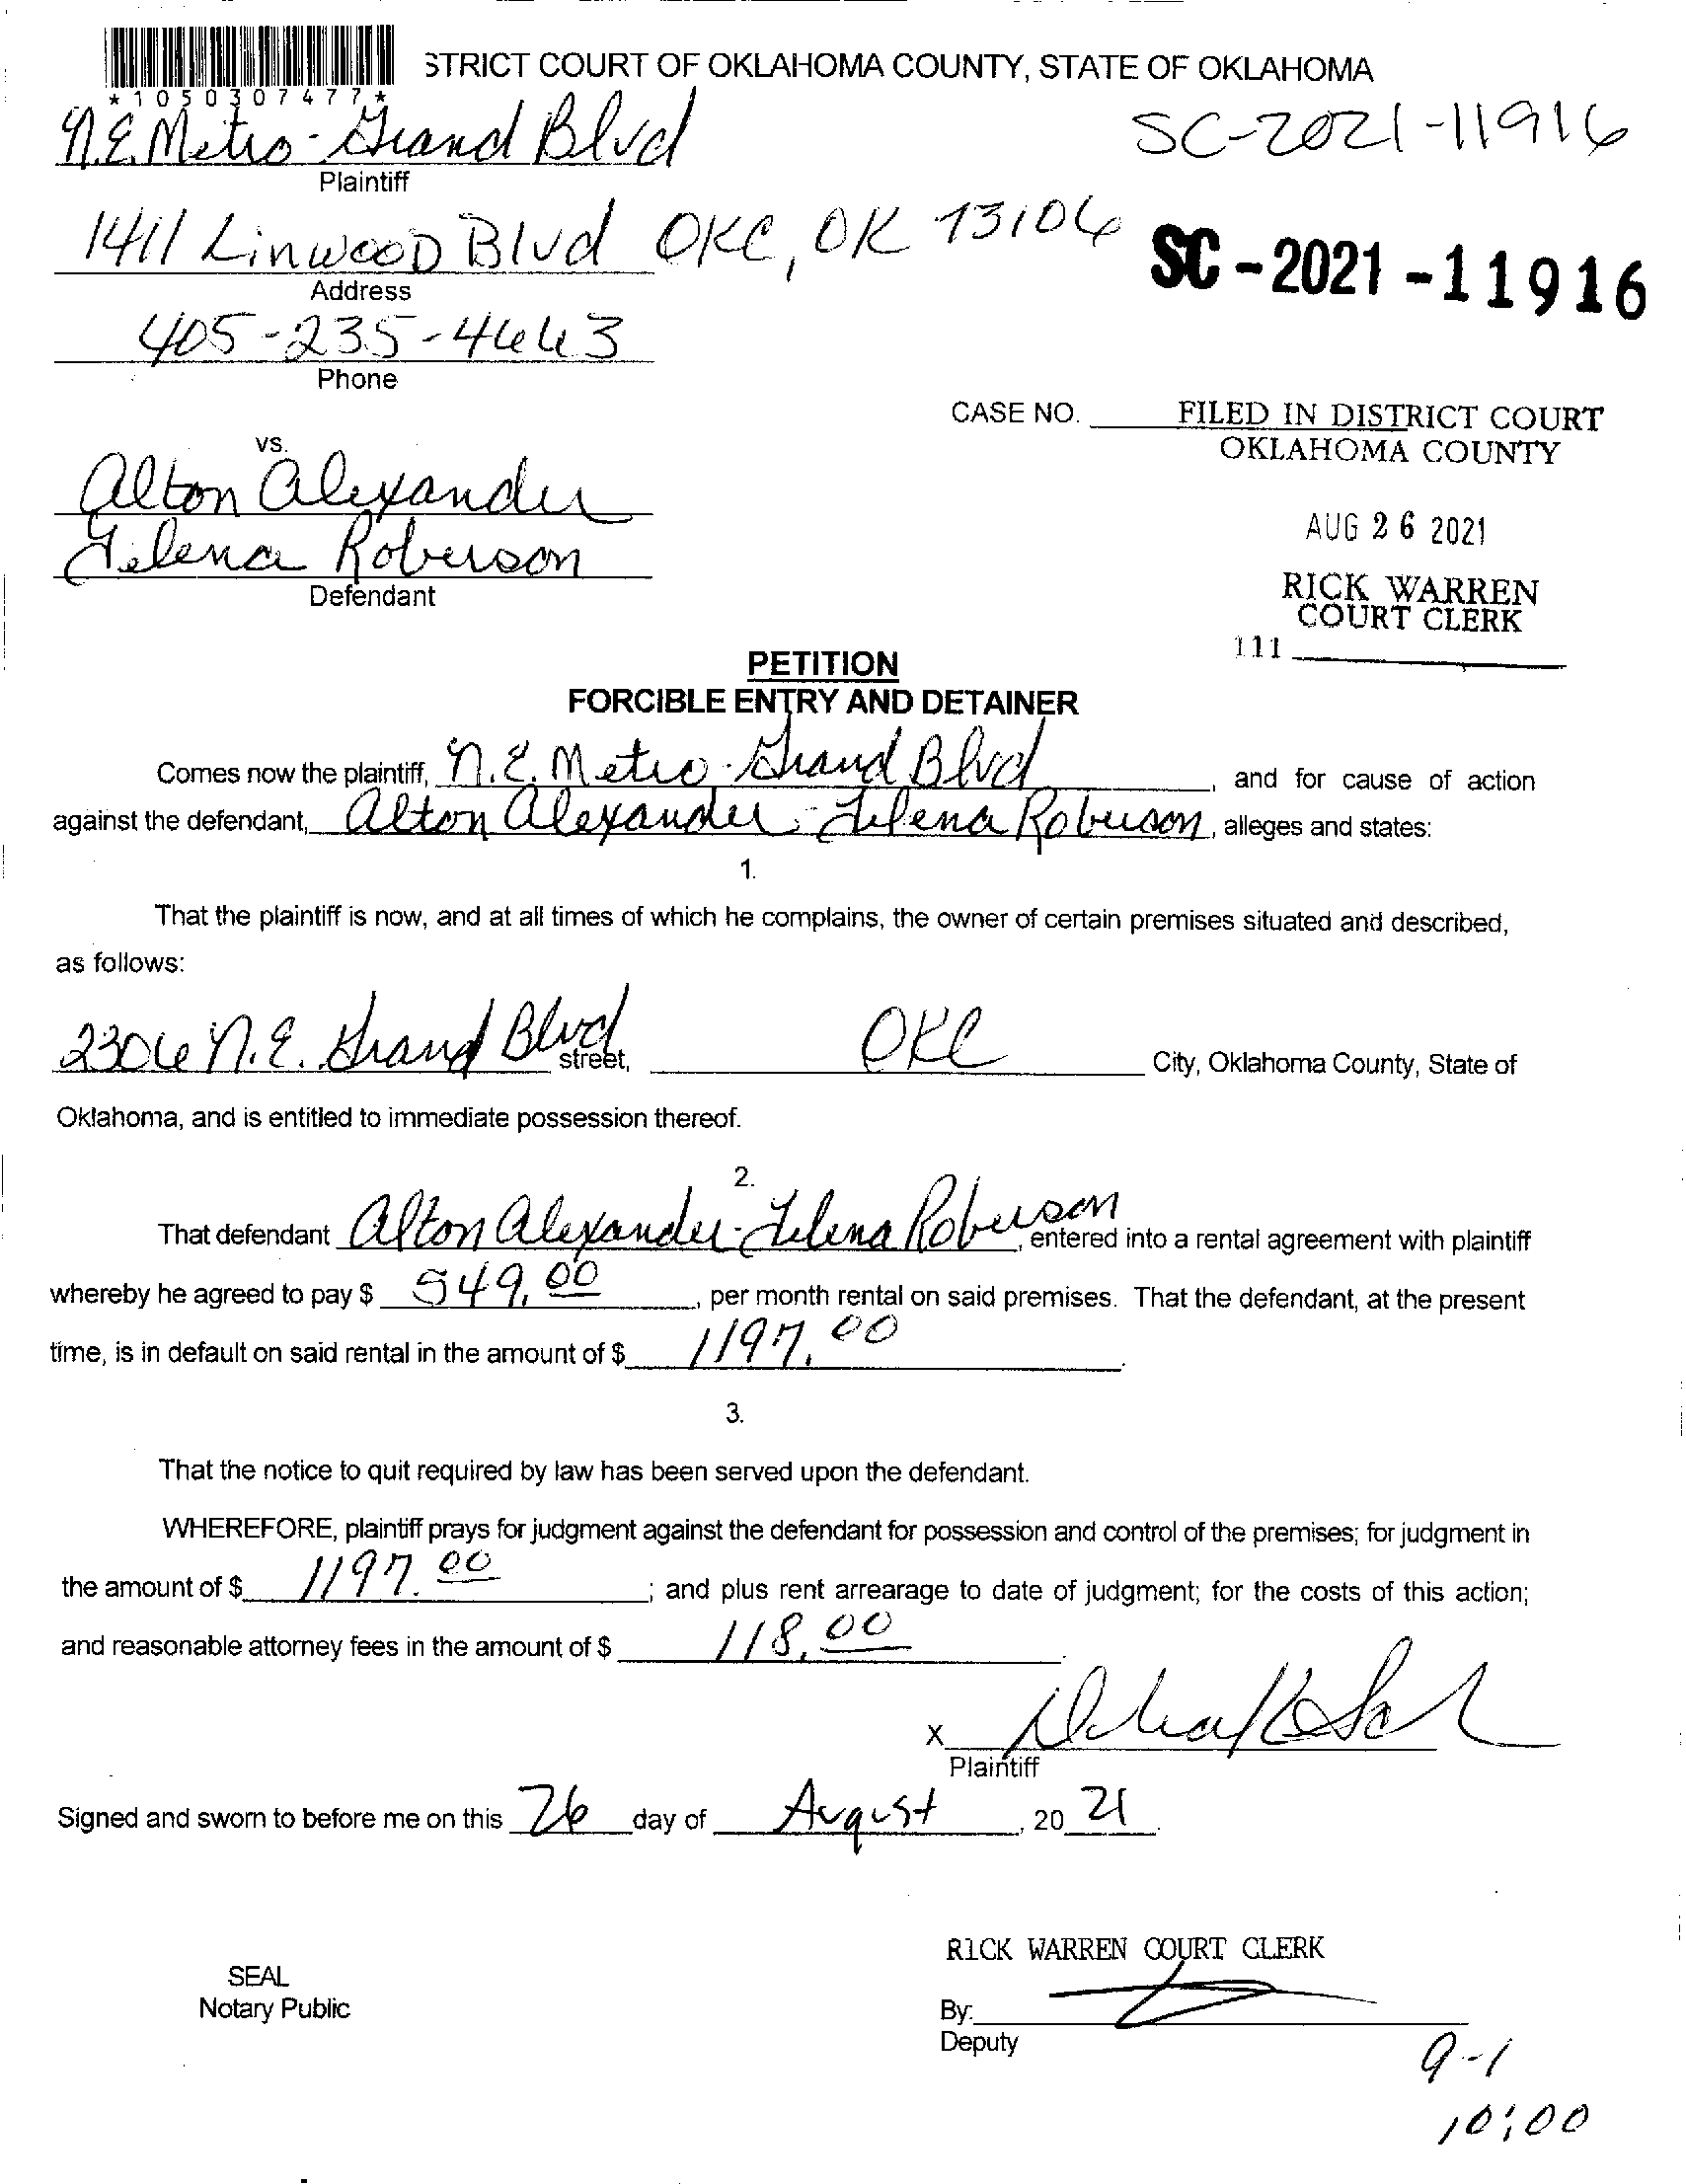 STRICT COURT OF OKLAHOMA COUNTY, STATE OF OKLAHOMA
*1050307477*
N.E. Metro-Grand Blvd
SC-2021-11916
Plaintiff
1411 Linwood Blvd OKC, OK 73106
SC-2021-11916
Address
405-235-4663
Phone
CASE NO.
FILED IN DISTRICT COURT
OKLAHOMA COUNTY
vs.
Alton Alexander
AUG 26 2021
Telena Roberson
Defendant
RICK WARREN
COURT CLERK
111
PETITION
FORCIBLE ENTRY AND DETAINER
Comes now the plaintiff, N.E. Metro-Grand Blvd, and for cause of action
against the defendant, Alton Alexander-Telena Roberson, alleges and states:
1.
That the plaintiff is now, and at all times of which he complains, the owner of certain premises situated and described,
as follows:
2306 N.E. Grand Blvd street, OKC City, Oklahoma County, State of
Oklahoma, and is entitled to immediate possession thereof.
2.
That defendant Alton Alexander-Telena Roberson, entered into a rental agreement with plaintiff
whereby he agreed to pay $ 549.00, per month rental on said premises. That the defendant, at the present
time, is in default on said rental in the amount of $ 1197.00.
3.
That the notice to quit required by law has been served upon the defendant.
WHEREFORE, plaintiff prays for judgment against the defendant for possession and control of the premises; for judgment in
the amount of $ 1197.00; and plus rent arrearage to date of judgment; for the costs of this action;
and reasonable attorney fees in the amount of $ 118.00.
X
Plaintiff
Signed and sworn to before me on this 26 day of August, 20 21.
RICK WARREN COURT CLERK
SEAL
Notary Public
By:
Deputy
9-1
10:00